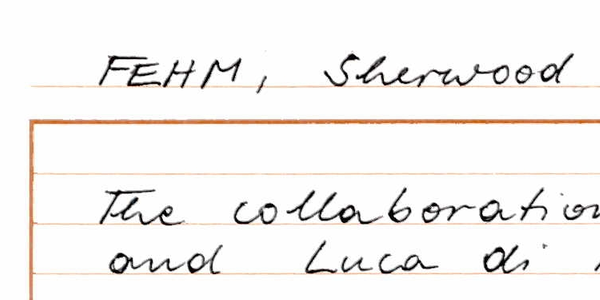 FEHM, Sherwood
The collaboration
and Luca di